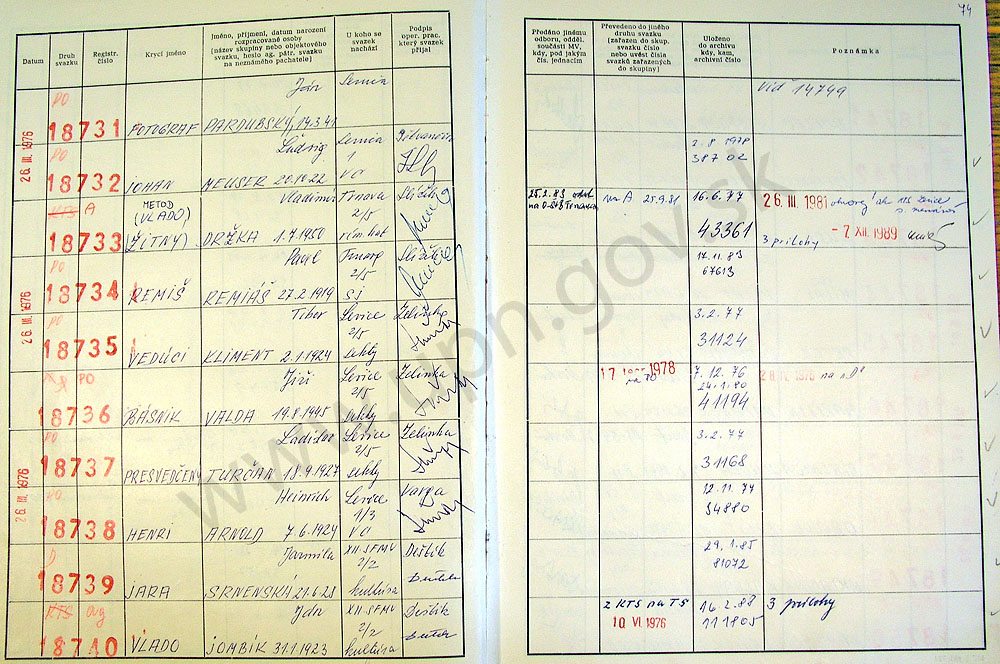 74
Datum
Druh svazku
Registr. číslo
Krycí jméno
Jméno, příjmení, datum narození
rozpracované osoby
(název skupiny nebo objektového
svazku, heslo ag. pátr. svazku
na neznámého pachatele)
U koho se
svazek
nachází
Podpis
oper. prac.
který svazek
přijal
Předáno jinému
odboru, odděl.
součásti MV,
kdy, pod jakým
čís. jednacím
Převedeno do jiného
druhu svazku
(zařazen do skup.
svazku číslo
nebo uvést čísla
svazků zařazených
do skupiny)
Uloženo
do archivu
kdy, kam,
archivní číslo
Poznámka
26. III. 1976
PO
Ján
Senica
viď 14749
18731 FOTOGRAF PARDUBSKÝ, 14.3.41
PO
Ludvig
Senica
2.8.1978
387 02
18732 JOHAN MEUSER 20.10.22
KTS A
METOD
(VLADO)
(ŽITNÝ)
Vladimír
Trnava
2/5
25.2.83
na A 25.9.81
16.6.77
26 III 1981
18733 DRŽKA 1.7.1950
rím. kat
43361
3 prílohy
- 7 XII. 1989
PO
Pavel
2/5
17.11.83
67613
18734 REMIŠ REMIÁŠ 27.2.1919
SJ
26. III. 1976
PO
Tibor
Levice
2/5
Zelinka
3.2.77
31124
18735 VEDÚCI KLIMENT 2.1.1924
sekty
PO
Jiří
Levice
2/5
Zelinka
1978
7.12.76
24.1.80
41194
18736 BÁSNIK VALDA 19.8.1945
sekty
PO
Ladislav
Levice
2/5
Zelinka
3.2.77
31168
18737 PRESVEDČENÝ TURČAN 18.9.1927
sekty
26. III. 1976
PO
Heinrich
Levice
1/3
Varga
12.11.77
34880
18738 HENRI ARNOLD 7.6.1924
Jarmila
XII. SFMV
2/2
29.1.85
81072
18739 JARA SRNENSKÁ 21.6.23
kultúra
KTS
Ján
XII. SFMV
2/2
z KTS na TS
10 VI. 1976
16.2.88
111805
3 prílohy
18740 VLADO JOMBÍK 31.1.1923
kultúra
www.upn.gov.sk